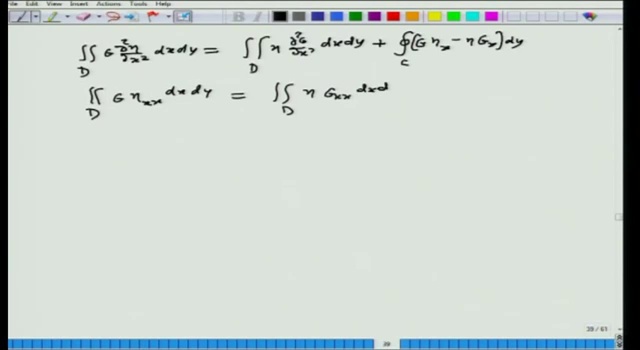 File Edit View Insert Actions Tools Help
∬_D G ∂²η/∂x² dxdy = ∬_D η ∂²G/∂x² dxdy + ∮_C (G η_x − η G_x) dy
∬_D G η_xx dxdy = ∬_D η G_xx dxd
39